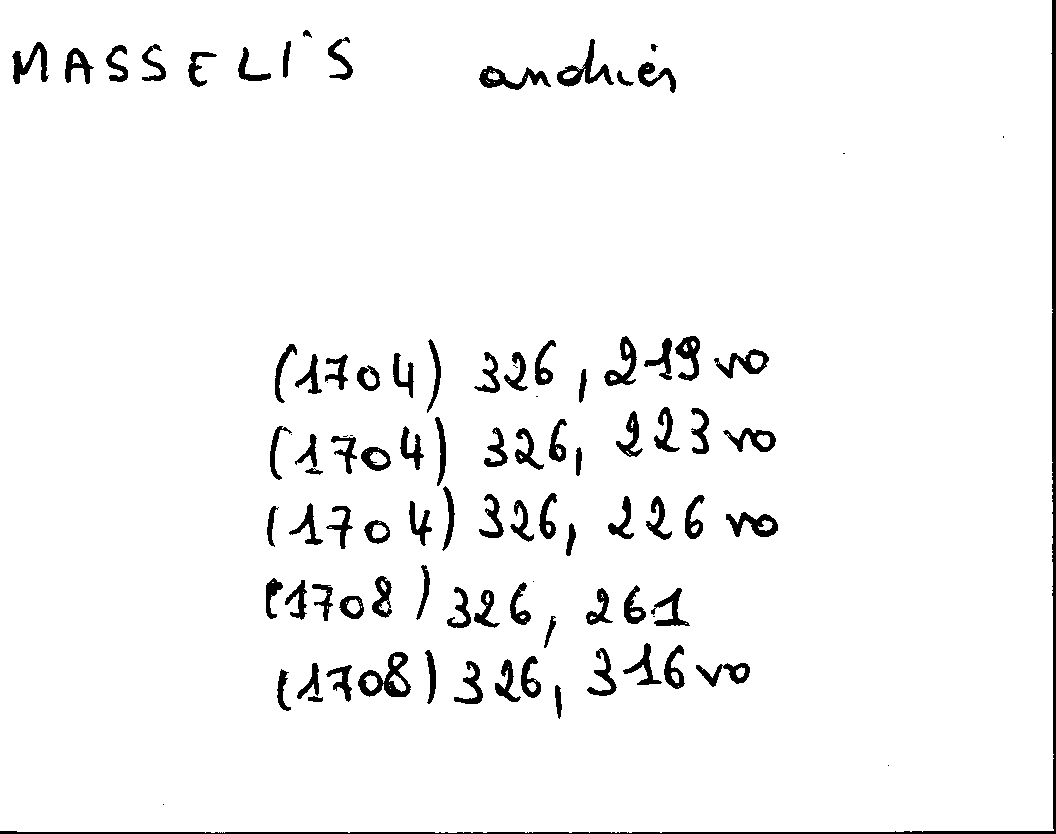 MASSELIS andries
(1704) 326, 219 vo
(1704) 326, 223 vo
(1704) 326, 226 vo
(1708) 326, 261
(1708) 326, 316 vo